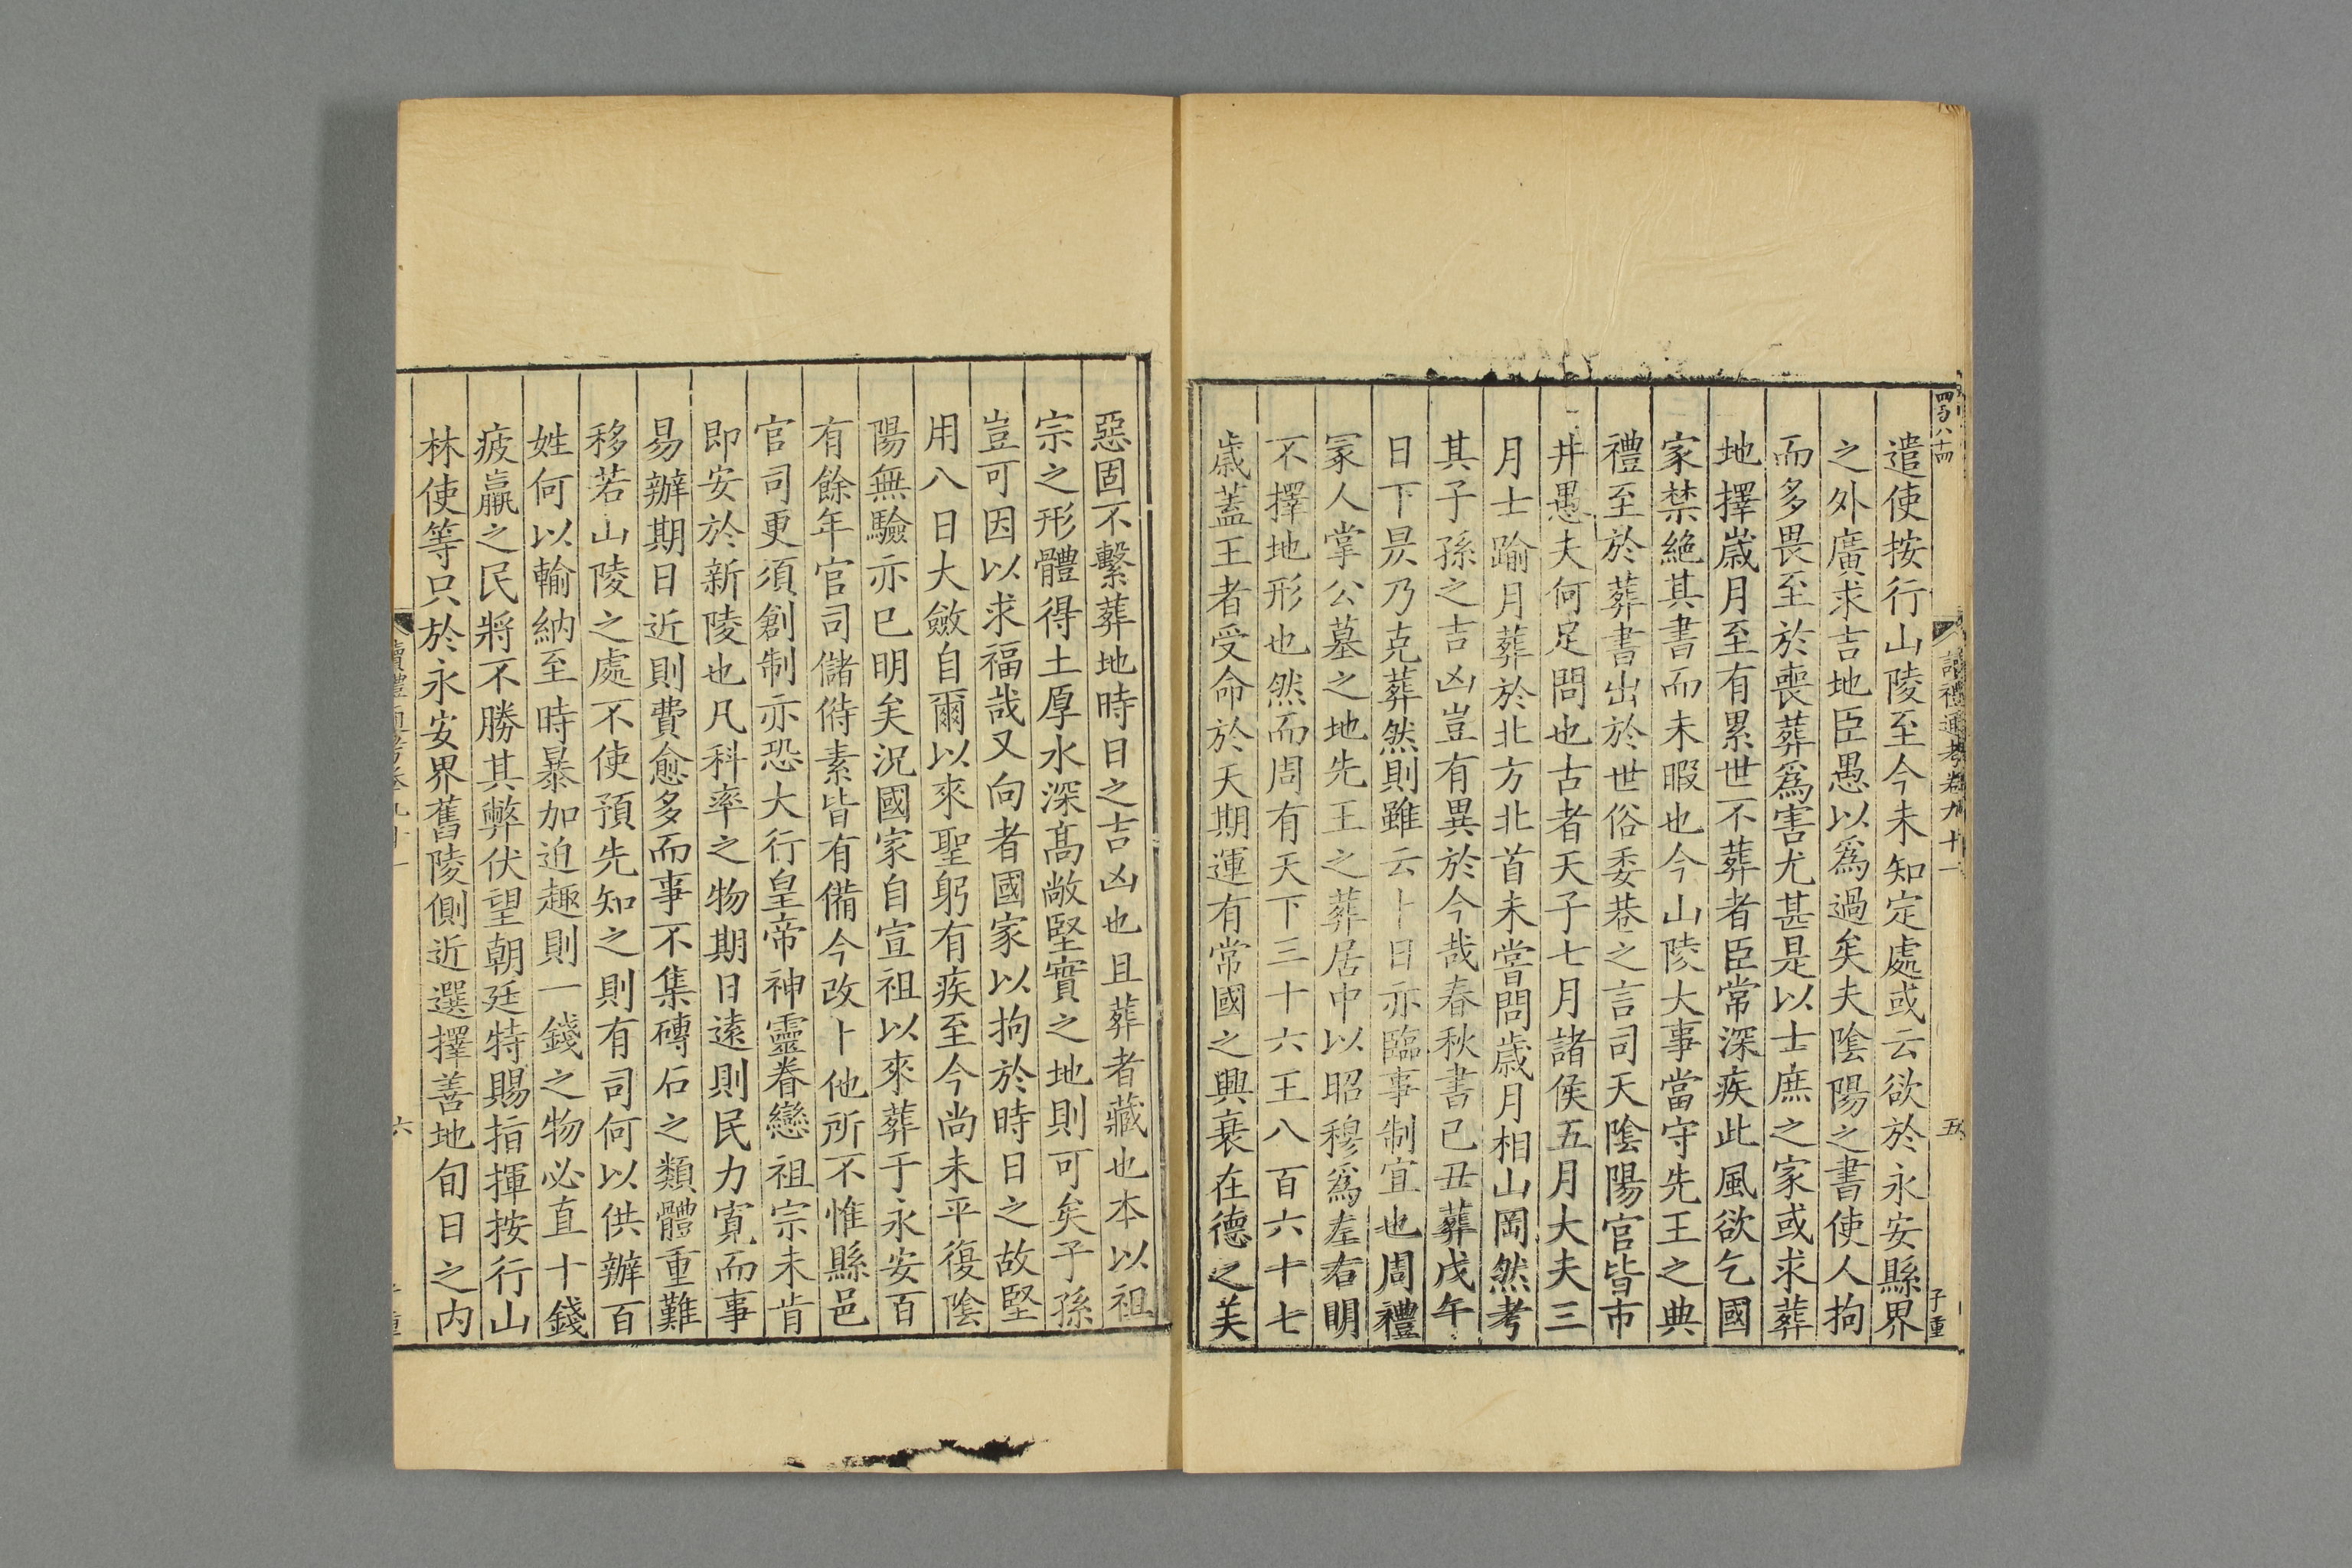 四百八十四
讀禮通考卷九十一
五
子重
遣使按行山陵至今未知定處或云欲於永安縣界
之外廣求吉地臣愚以爲過矣夫陰陽之書使人拘
而多畏至於喪葬爲害尤甚是以士庶之家或求葬
地擇歲月至有累世不葬者臣常深疾此風欲乞國
家禁絶其書而未暇也今山陵大事當守先王之典
禮至於葬書出於世俗委巷之言司天陰陽官皆市
井愚夫何足問也古者天子七月諸侯五月大夫三
月士踰月葬於北方北首未嘗問歲月相山岡然考
其子孫之吉凶豈有異於今哉春秋書己丑葬戊午
日下昃乃克葬然則雖云卜日亦臨事制宜也周禮
冡人掌公墓之地先王之葬居中以昭穆爲左右明
不擇地形也然而周有天下三十六王八百六十七
歲蓋王者受命於天期運有常國之興衰在德之美
惡固不繫葬地時日之吉凶也且葬者藏也本以祖
宗之形體得土厚水深髙敞堅實之地則可矣子孫
豈可因以求福哉又向者國家以拘於時日之故堅
用八日大斂自爾以來聖躬有疾至今尚未平復陰
陽無驗亦已明矣況國家自宣祖以來葬于永安百
有餘年官司儲偫素皆有備今改卜他所不惟縣邑
官司更須創制亦恐大行皇帝神靈眷戀祖宗未肯
即安於新陵也凡科率之物期日遠則民力寛而事
易辦期日近則費愈多而事不集磚石之類體重難
移若山陵之處不使預先知之則有司何以供辦百
姓何以輸納至時暴加迫趣則一錢之物必直十錢
疲羸之民將不勝其弊伏望朝廷特賜指揮按行山
林使等只於永安界舊陵側近選擇善地旬日之内
讀禮通考卷九十一
六